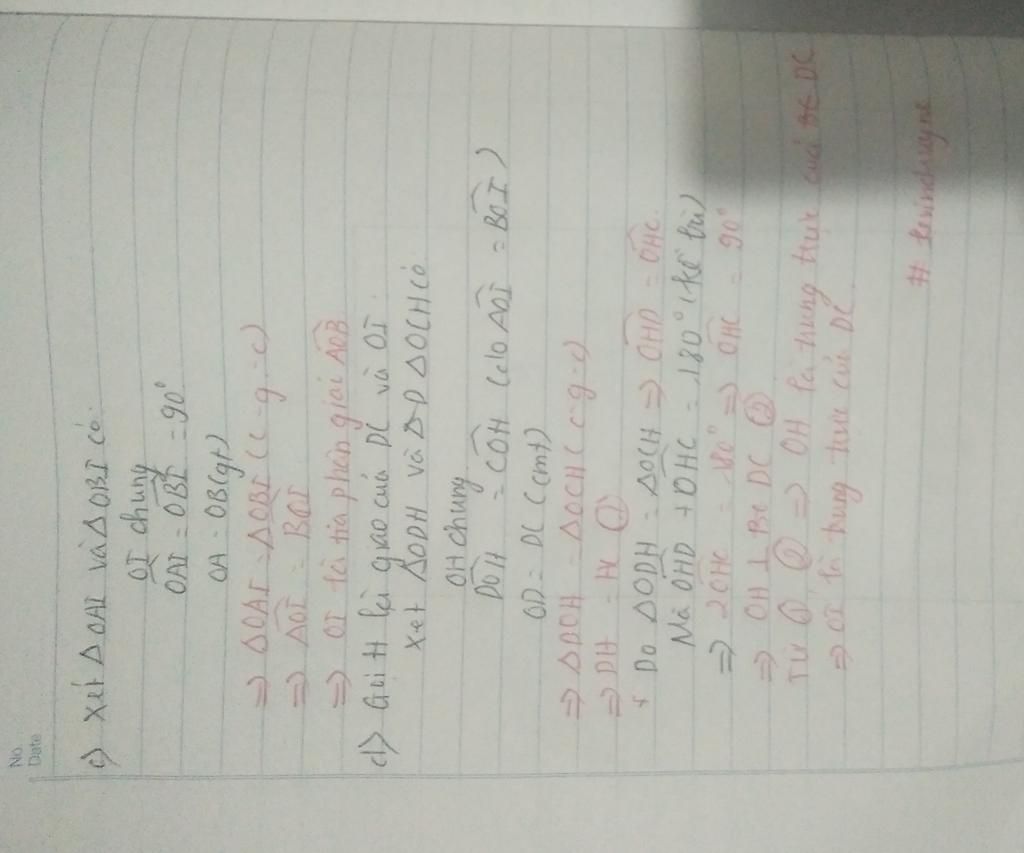 No.
Date
c) Xét Δ OAI và Δ OBI có:
OI chung
OAI = OBI = 90°
OA = OB (gt)
=> Δ OAI = Δ OBI (c-g-c)
=> AOI = BOI
=> OI là tia phân giác AOB
d) Gọi H là giao của DC và OI.
Xét Δ ODH và Δ OCH có
OH chung
DOH = COH (do AOI = BOI)
OD = DC (cmt)
=> Δ DOH = Δ OCH (c-g-c)
=> DH = HC ①
+ Do Δ ODH = Δ OCH => OHD = OHC.
Mà OHD + OHC = 180° (kề bù)
=> 2OHC = 180° => OHC = 90°
=> OH ⊥ DC ②
Từ ①, ② => OH là trung trực của DC
=> OI là trung trực của DC